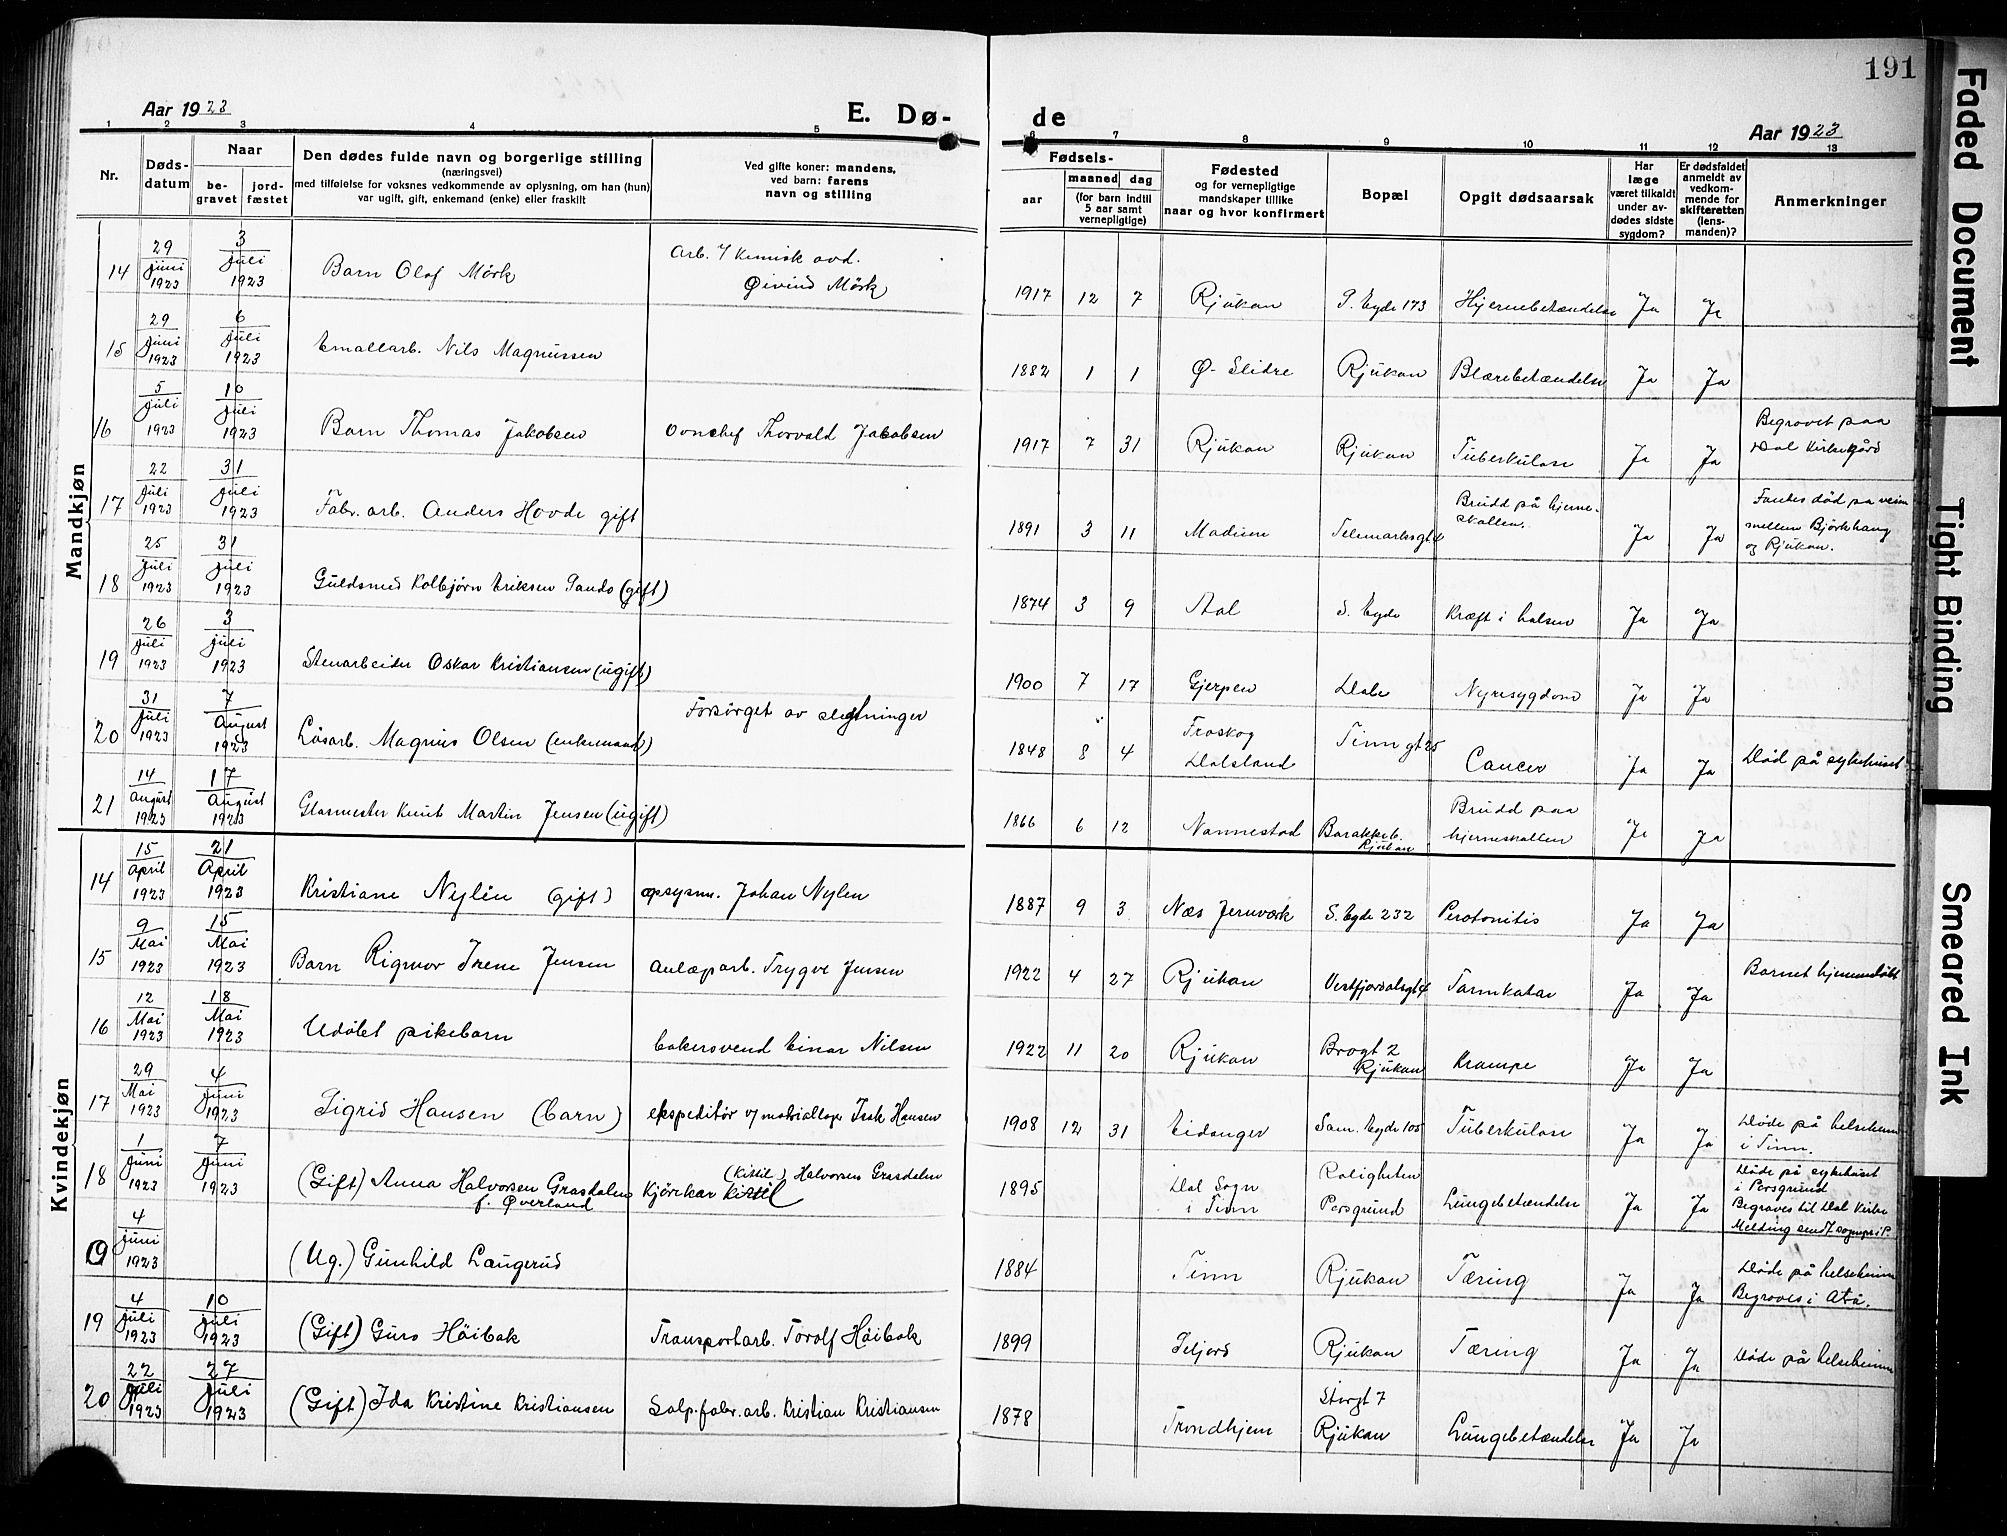 191
Aar 1923
E. Dø-
de
Aar 1923
1 2 3 4 5 6 7 8 9 10 11 12 13
Nr.
Døds-
datum
Naar
be-
gravet
jord-
fæstet
Den dødes fulde navn og borgerlige stilling
(næringsvei)
med tilføielse for voksnes vedkommende av oplysning, om han (hun)
var ugift, gift, enkemand (enke) eller fraskilt
Ved gifte koner: mandens,
ved barn: farens
navn og stilling
Fødsels-
aar
maaned dag
(for barn indtil
5 aar samt
vernepligtige)
Fødested
og for vernepligtige
mandskaper tillike
naar og hvor konfirmert
Bopæl
Opgit dødsaarsak
Har
læge
været tilkaldt
under av-
dødes sidste
sygdom?
Er dødsfaldet
anmeldt av
vedkom-
mende for
skifteretten
(lens-
manden)?
Anmerkninger
Mandkjøn
14 29/juni 1923 3/juli 1923 Barn Olaf Mörk Arb. v/ Kemisk avd. Øivind Mörk 1917 12 7 Rjukan S. Eyde 173 Hjernebetændelse Ja Ja
15 29/juni 1923 6/juli 1923 Emallarb. Nils Magnussen 1882 1 1 Ø. Slidre Rjukan Blærebetændelse Ja Ja
16 5/juli 1923 10/juli 1923 Barn Thomas Jakobsen Ovnchef Thorvald Jakobsen 1917 7 31 Rjukan Rjukan Tuberkulose Ja Ja Begravet paa Dal Kirkegård
17 22/juli 1923 31/juli 1923 Fabr. arb. Anders Hovde gift 1891 3 11 Modum Telemarksgt 4 Brudd på hjerneskallen. Ja Ja Fantes död pa veien mellem Björkhaug og Rjukan.
18 25/juli 1923 31/juli 1923 Guldsmed Kolbjørn Eriksen Sando (gift) 1874 3 9 Aal S. Eyde Kræft i halsen Ja Ja
19 26/juli 1923 3/juli 1923 Stenarbeider Oskar Kristiansen (ugift) 1900 7 17 Gjerpen Dale Nyresygdom Ja Ja
20 31/juli 1923 7/August 1923 Lösarb. Magnus Olsen (enkemand) Forsörget av slegtninger 1848 8 4 Froskog Dalsland Tinngt 25 Cancer Ja Ja Död på sykehuset
21 14/August 1923 17/August 1923 Glasmester Knut Martin Jensen (ugift) 1866 6 12 Nannestad Barakkeb. Rjukan Brudd paa hjerneskallen Ja Ja
Kvindekjøn
14 15/April 1923 21/April 1923 Kristiane Nylén (gift) opsysm. Johan Nylen 1887 9 3 Næs Jernværk S. Eyde 232 Perotonitis Ja Ja
15 9/Mai 1923 15/Mai 1923 Barn Rigmor Irene Jensen Anlæparb. Trygve Jensen 1922 4 27 Rjukan Vestfjordalsgt 4 Tarmkatar Ja Ja Barnet hjemmedöbt
16 12/Mai 1923 18/Mai 1923 Udöbt pikebarn bakersvend Einar Nilsen 1922 11 20 Rjukan Brogt 2 Rjukan Krampe Ja Ja
17 29/Mai 1923 4/Juni 1923 Sigrid Hansen (barn) ekspeditör v/ matriallage Isak Hansen 1908 12 31 Eidanger Sam. Eyde 105 Tuberkulose Ja Ja Döde på helseheim i Tinn.
18 1/Juni 1923 7/Juni 1923 (Gift) Anna Halvorsen Grasdalen f. Øverland Kjörekar Kittil (Kittil) Halvorsen Grasdalen 1895 Dal Sogn i Tinn Roligheten Porsgrund Lungebetændelse Ja Ja Döde på sykehuset i Porsgrund Begraves til Dal Kirke Melding sendt sognepr. i P.
0 4/Juni 1923 (Ug.) Gunhild Laugerud 1884 Tinn Rjukan Tæring Ja Ja Döde på helseheim Begroves i Atrå.
19 4/juli 1923 10/juli 1923 (Gift) Guro Höibak Transportarb. Torolf Höibak 1899 Seljord Rjukan Tæring Ja Ja Döde på helseheim
20 22/juli 1923 27/juli 1923 (Gift) Ida Kristine Kristiansen Salp.fabr.arb. Kristian Kristiansen 1878 Trondhjem Storgt 7 Rjukan Lungebetændelse Ja Ja
Faded Document
Tight Binding
Smeared Ink